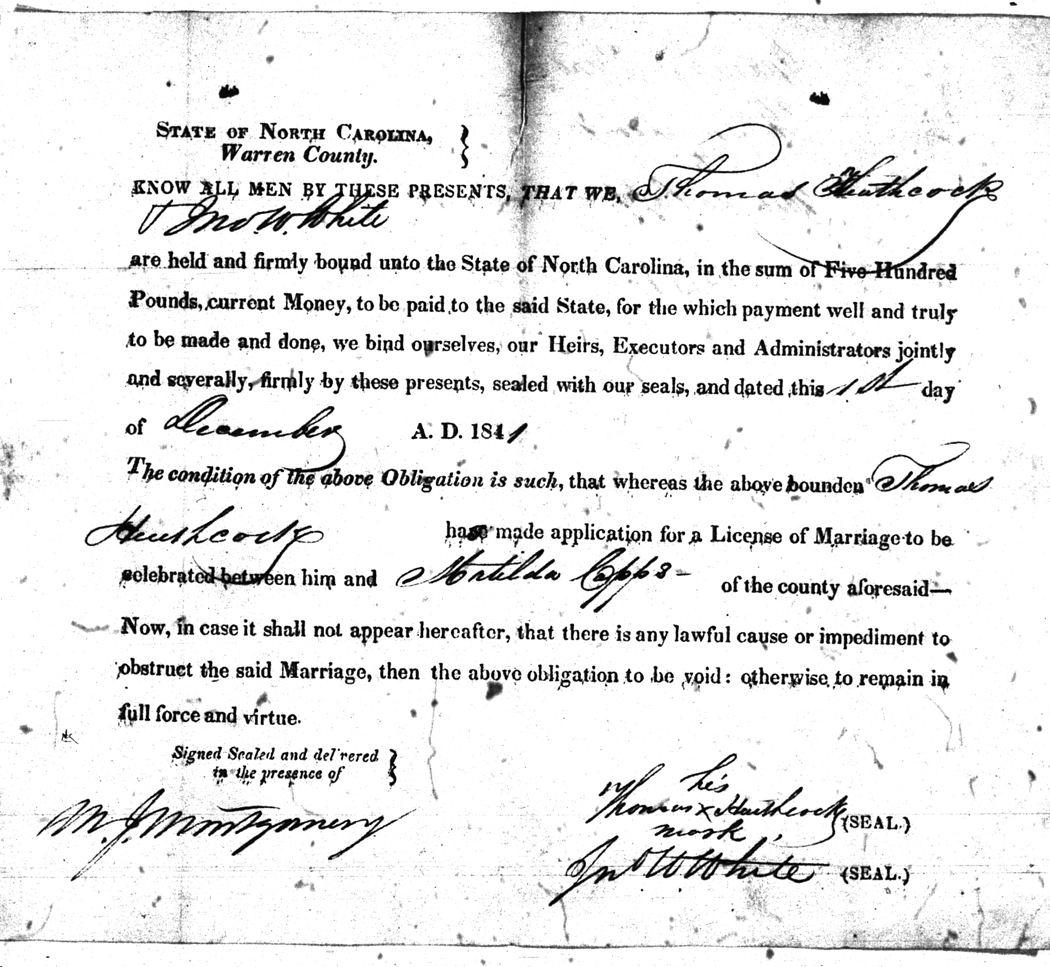 STATE OF NORTH CAROLINA,
Warren County.
KNOW ALL MEN BY THESE PRESENTS, THAT WE, Thomas Heathcock
& Jno W. White
are held and firmly bound unto the State of North Carolina, in the sum of Five Hundred
Pounds, current Money, to be paid to the said State, for the which payment well and truly
to be made and done, we bind ourselves, our Heirs, Executors and Administrators jointly
and severally, firmly by these presents, sealed with our seals, and dated this 1st day
of December A. D. 1841
The condition of the above Obligation is such, that whereas the above bounden Thomas
Heathcock has made application for a License of Marriage to be
celebrated between him and Matilda Capps - of the county aforesaid—
Now, in case it shall not appear hereafter, that there is any lawful cause or impediment to
obstruct the said Marriage, then the above obligation to be void: otherwise to remain in
full force and virtue.
Signed Sealed and delivered
in the presence of
M. J. Montgomery
his
Thomas x Heathcock (SEAL.)
mark
Jno W White (SEAL.)